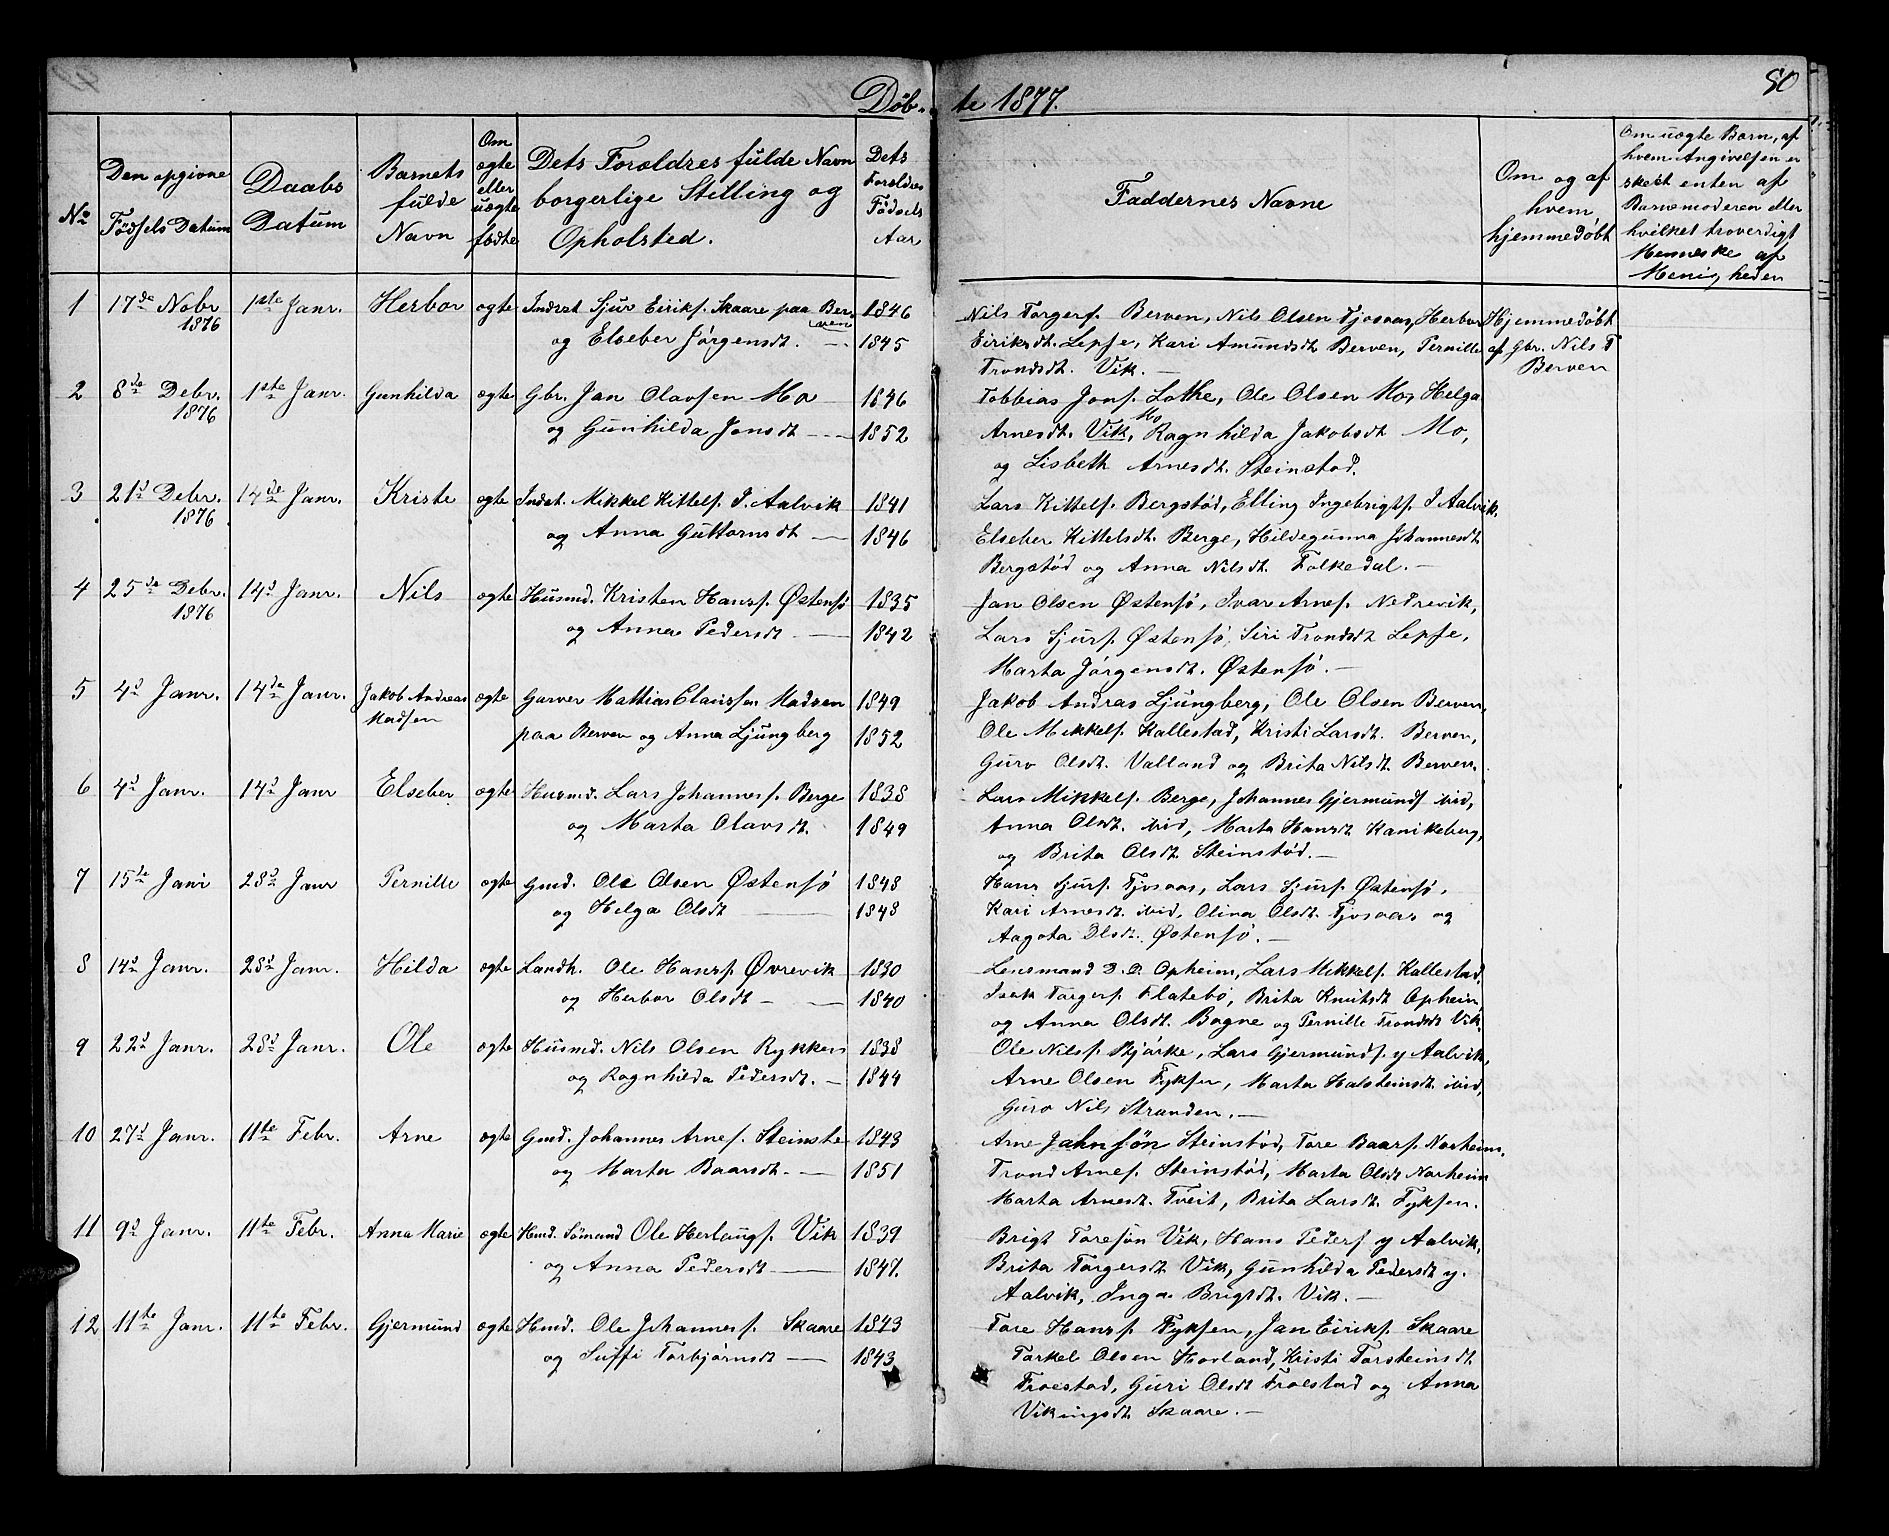 Döb-
te 1877.
80
No
Den opgivne
Födsels Datum
Daabs
Datum
Barnets
fulde
Navn
Om
ægte
eller
uægte
fødte
Dets Forældres fulde Navn
borgerlige Stilling og
Opholsted.
Dets
Forældres
Födsels
Aar
Faddernes Navne
Om og af
hvem
hjemmedöbt
Om uægte Barn, af
hvem Angivelsen er
skeet enten af
Barnemoderen eller
hvilket troverdigt
Menneske af
Menigheden
1 17de Nobr 1ste Janr. Herbor ægte Inderst Sjur Eiriks. Skaare paa Ber- 1846
1876 ven
og Elseber Jörgensdt. — 1845
Nils Torgers. Berven, Nils Olsen Tjosaas, Herbor
Eiriksdt. Lepse, Kari Amundsdt Berven, Pernille
Trondsdt. Vik. —
Hjemmedöbt
af Gbr. Nils T
Berven
2 8de Debr. 1ste Janr. Gunhilda ægte Gbr. Jan Olavsen Mo 1846
1876
og Gunhilda Jonsdt — 1852
Tobbias Jons. Lothe, Ole Olsen Mo, Helga
Arnesdt. Vik, Mo Ragnhilda Jakobsdt Mo,
og Lisbeth Arnesdt. Steinstod.
3 21d Debr. 14de Janr. Kriste ægte Indst. Mikkel Kittels. I. Aalvik 1841
1876
og Anna Guttormsdt — 1846
Lars Kittels. Bergstød, Elling Ingebrigts. I Aalvik.
Elseber Kittelsdt. Berge, Hildegunna Johannesdt
Bergstød og Anna Nilsdt. Folkedal. —
4 25de Debr. 14d Janr. Nils ægte Husmd. Kristen Hans. Østensö 1835
1876
og Anna Pedersdt. — 1842
Jan Olsen Østensö, Ivar Arnes. Nedrevik,
Lars Sjurs. Østensö, Siri Trondsdt Lepse,
Marta Jörgensdt. Østensö. —
5 4d Janr. 14de Janr. Jakob Andreas ægte Garver Mathias Claussen Madsen 1849
Madsen
paa Berven og Anna Ljungberg 1852
Jakob Andras Ljungberg, Ole Olsen Berven,
Ole Mekkels. Kallestad, Kristi Larsdt. Berven,
Guro Olsdt. Valland og Brita Nilsdt. Berven.
6 4d Janr. 14d Janr Elseber ægte Husmd. Lars Johannes. Berge 1838
og Marta Olavsdt. 1849
Lars Mikkels. Berge, Johannes Gjermunds ibid,
Anna Olsdt. ibid, Marta Hansdt Kanikeberg,
og Brita Olsdt. Steinstød. —
7 15de Janr 28d Janr Pernille ægte Gmd. Ole Olsen Østensö 1848
og Helga Olsdt — 1848
Hans Sjurs. Tjosaas, Lars Sjurs. Østensö,
Kari Arnesdt. ibid, Olina Olsdt. Tjosaas og
Aagota Olsdt. Østensö. —
8 14d Janr. 28d Janr. Hilda ægte Landh. Ole Hans. Øvrevik 1830
og Herbor Olsdt — 1840
Lensmand D. D. Opheim, Lars Mikkels. Kallestad,
Isak Torgers. Flatebö, Brita Knutsdt Opheim
og Anna Olsdt. Bagne og Pernille Trondsdt Vik.
9 22d Janr. 28d Janr. Ole ægte Husmd. Nils Olsen Rykken 1838
og Ragnhilda Pedersdt. — 1844
Ole Nils. Bjørke, Lars Gjermunds. y Aalvik,
Arne Olsen Fyksen, Marta Halsteinsdt. ibid,
Guro Nils Stranden. —
10 27d Janr. 11te Febr. Arne ægte Gmd. Johannes Arnes. Steinstø 1843
og Marta Baarsdt. — 1851
Arne Jahnsön Steinstød, Tore Baars. Norheim,
Trond Arnes. Steinstød, Marta Olsdt Norheim
Marta Arnesdt. Tveit, Brita Larsdt. Fyksen.
11 9d Janr. 11te Febr. Anna Marie ægte Hmd. Sömand Ole Herlaugs. Vik 1839
og Anna Pedersdt — 1847.
Brigt Toresön Vik, Hans Peders y Aalvik,
Brita Torgersdt. Vik, Gunhilda Pedersdt y.
Aalvik, Inga Brigtdt. Vik. —
12 11te Janr. 11te Febr. Gjermund ægte Hmd. Ole Johannes. Skaare 1843
og Suffi Torbjörnsdt — 1843
Tore Hans. Fyksen, Jan Eiriks. Skaare
Torkel Olsen Hovland, Kristi Torsteinsdt
Froestad, Guri Olsdt Froestad og Anna
Vikingsdt. Skaare. —